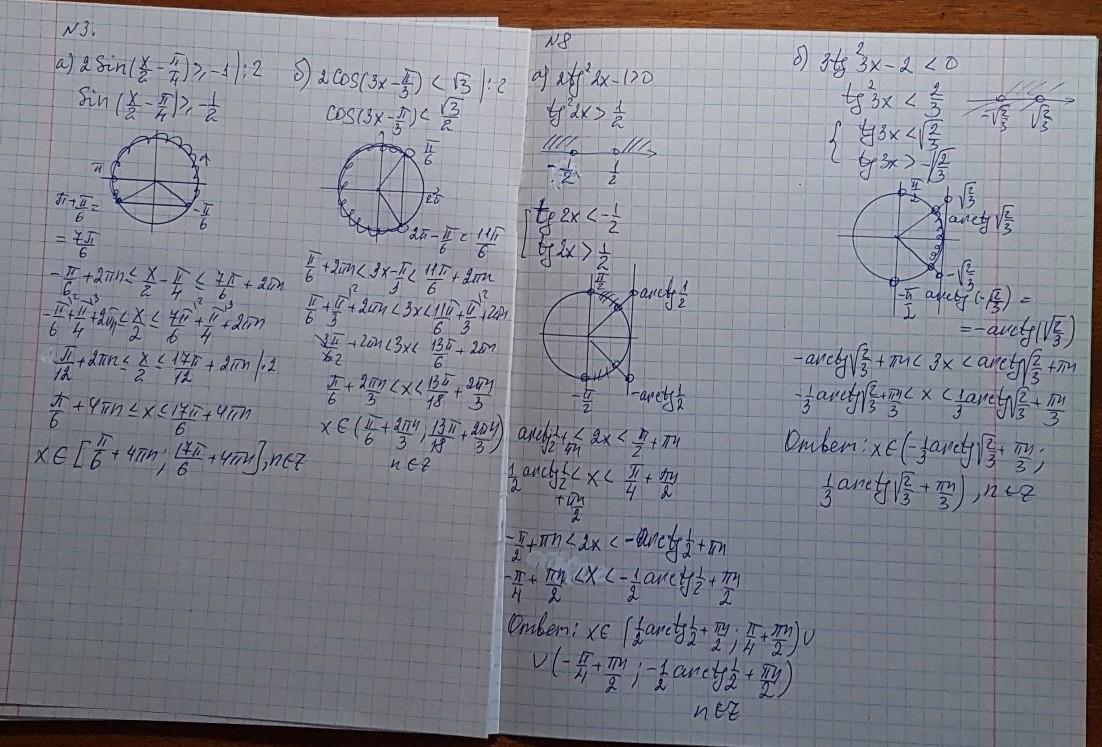 N3.
а) 2 sin(x/2 - π/4) ≥ -1 |:2
sin(x/2 - π/4) ≥ -1/2
π
π + π/6 =
= 7π/6
-π/6
-π/6 + 2πn ≤ x/2 - π/4 ≤ 7π/6 + 2πn
-π/6 + π/4 + 2πn ≤ x/2 ≤ 7π/6 + π/4 + 2πn
π/12 + 2πn ≤ x/2 ≤ 17π/12 + 2πn |·2
π/6 + 4πn ≤ x ≤ 17π/6 + 4πn
x ∈ [π/6 + 4πn; 17π/6 + 4πn], n∈Z
б) 2cos(3x - π/3) < √3 |:2
cos(3x - π/3) < √3/2
π/6
2π
2π - π/6 = 11π/6
π/6 + 2πn < 3x - π/3 < 11π/6 + 2πn
π/6 + π/3 + 2πn < 3x < 11π/6 + π/3 + 2πn
+ 2πn < 3x < 13π/6 + 2πn
π/6 + 2πn/3 < x < 13π/18 + 2πn/3
x ∈ (π/6 + 2πn/3; 13π/18 + 2πn/3)
n ∈ Z
N8
а) 2tg²2x - 1 > 0
tg²2x > 1/2
-1/2 1/2
[ tg2x < -1/2
tg2x > 1/2
π/2 arctg 1/2
-π/2 -arctg 1/2
arctg 1/2 + πn < 2x < π/2 + πn
1/2 arctg 1/2 + πn/2 < x < π/4 + πn/2
-π/2 + πn < 2x < -arctg 1/2 + πn
-π/4 + πn/2 < x < -1/2 arctg 1/2 + πn/2
Ответ: x ∈ (1/2 arctg 1/2 + πn/2; π/4 + πn/2) ∪
∪ (-π/4 + πn/2; -1/2 arctg 1/2 + πn/2)
n∈Z
б) 3tg²3x - 2 < 0
tg²3x < 2/3
-√2/3 √2/3
{ tg3x < √2/3
tg3x > -√2/3
π/2 √2/3
arctg √2/3
-√2/3
-π/2 arctg(-√2/3) =
= -arctg(√2/3)
-arctg√2/3 + πn < 3x < arctg√2/3 + πn
-1/3 arctg√2/3 + πn/3 < x < 1/3 arctg√2/3 + πn/3
Ответ: x ∈ (-1/3 arctg√2/3 + πn/3;
1/3 arctg√2/3 + πn/3), n ∈ Z